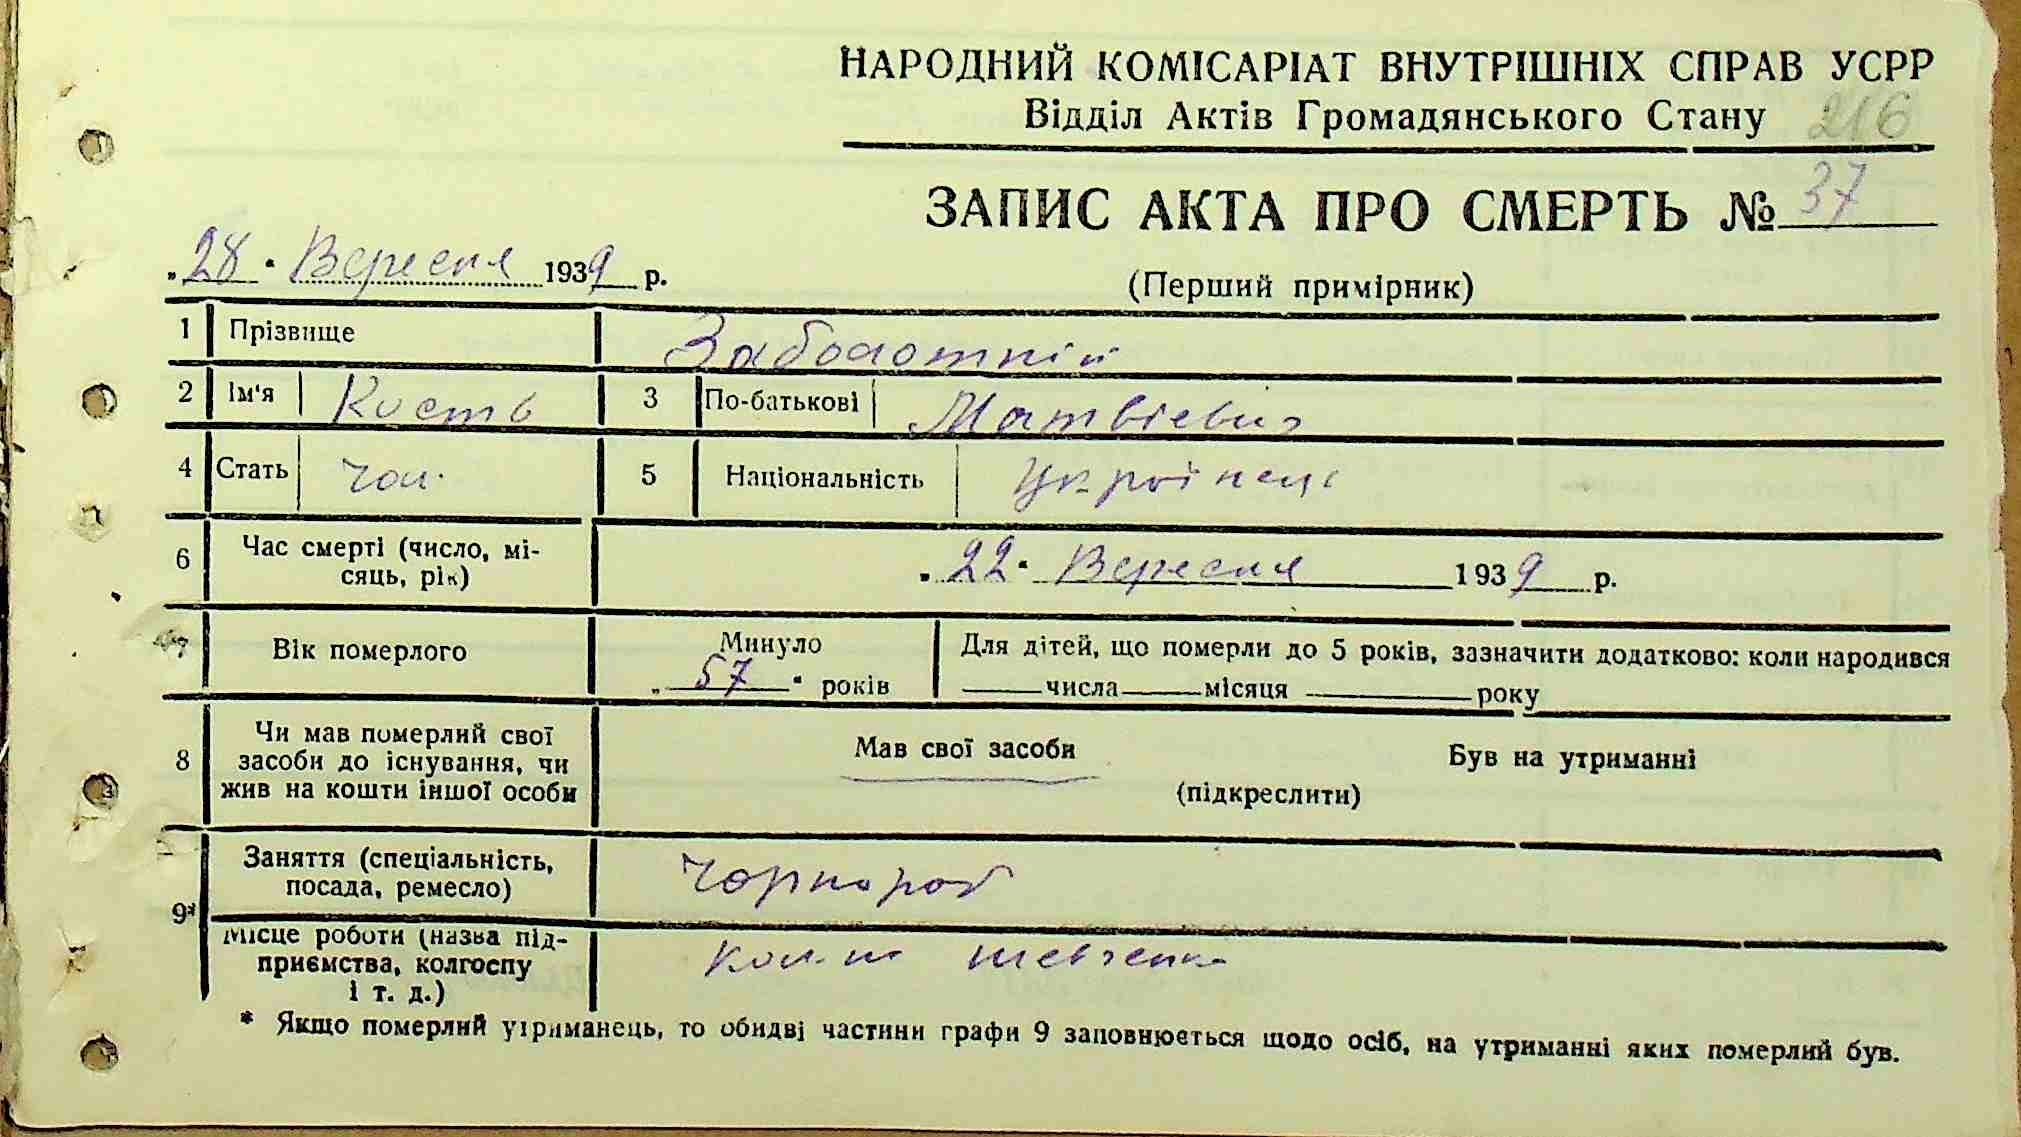 НАРОДНИЙ КОМІСАРІАТ ВНУТРІШНІХ СПРАВ УСРР
Відділ Актів Громадянського Стану 216
ЗАПИС АКТА ПРО СМЕРТЬ № 37
„28" Вересня 1939 р.
(Перший примірник)
1 Прізвище Заболотній
2 Ім'я Кость 3 По-батькові Матвієвич
4 Стать чол. 5 Національність Українець
6 Час смерті (число, мі-
сяць, рік) „22" Вересня 1939 р.
7 Вік померлого Минуло „57" років
Для дітей, що померли до 5 років, зазначити додатково: коли народився
числа місяця року
8 Чи мав померлий свої
засоби до існування, чи
жив на кошти іншої особи
Мав свої засоби Був на утриманні
(підкреслити)
9* Заняття (спеціальність,
посада, ремесло) Чорнороб
Місце роботи (назва під-
приємства, колгоспу
і т. д.) Шевченка
* Якщо померлий утриманець, то обидві частини графи 9 заповнюється щодо осіб, на утриманні яких померлий був.